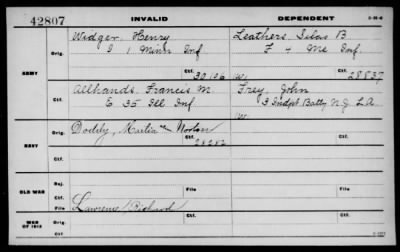 42807 INVALID DEPENDENT
Widger, Henry Leathers, Silas B.
Orig. I 1 Minn Inf F 4 Me Inf.
ARMY Ctf. 30,136 W. Ctf. 28837
Allhands, Francis M. Frey, John
Ctf. E 35 Ill Inf 3 Indpt Batty N.J. L.A.
W.
Orig. Martin Norton Ctf.
NAVY 28282
Ctf.
Rej.
OLD WAR File File
Ctf. Lawrence, Richard
WAR OF 1812 Ctf. Ctf.